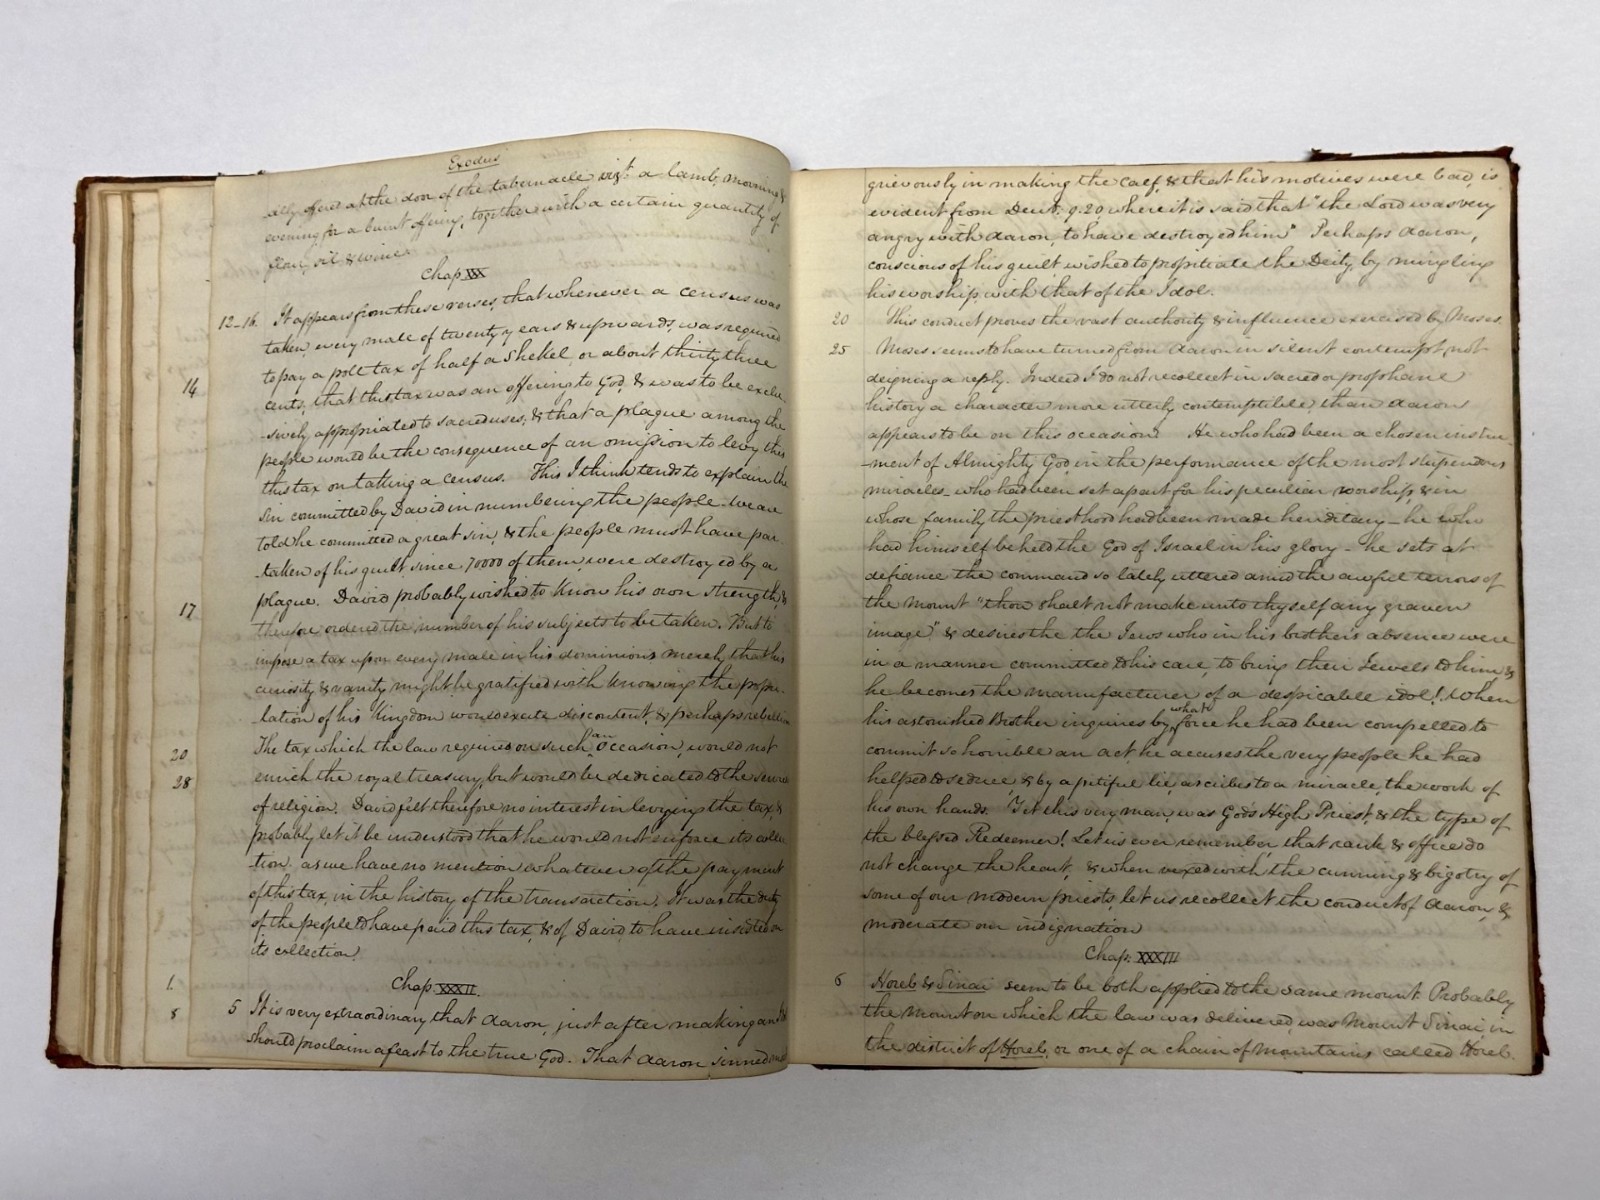 Exodus
-ally offered at the door of the tabernacle viz: a lamb, morning &
evening for a burnt offering, together with a certain quantity of
flour, oil & wine.
Chap. XXX
12-16. It appears from these verses, that whenever a census was
taken, every male of twenty years & upwards, was required
to pay a poll tax of half a Shekel, or about thirty three
cents, that this tax was an offering to God, & was to be exclu-
-sively appropriated to sacred uses; & that a plague among the
people would be the consequence of an omission to levy this
this tax on taking a census. This I think tends to explain the
sin committed by David in numbering the people. We are
told he committed a great sin, & the people must have par-
-taken of his guilt, since 70000 of them were destroyed by a
plague. David probably wished to know his own strength, &
therefore ordered the number of his subjects to be taken. But to
impose a tax upon every male in his dominions merely that his
curiosity & vanity might be gratified with knowing the popu-
-lation of his Kingdom would excite discontent, & perhaps rebellion
The tax which the law required on such an occasion, would not
enrich the royal treasury, but would be dedicated to the service
of religion. David felt therefore no interest in levying the tax, &
probably let it be understood that he would not enforce its collec-
-tion, as we have no mention whatever of the payment
of this tax, in the history of the transaction. It was the duty
of the people to have paid this tax, & of David to have insisted on
its collection.
Chap. XXXII.
5 It is very extraordinary that Aaron, just after making an
should proclaim a feast to the true God. That Aaron sinned
14
17
20
28
1.
8
grievously in making the calf, & that his motives were bad, is
evident from Deut. 9.20 where it is said that "the Lord was very
angry with Aaron, to have destroyed him" Perhaps Aaron,
conscious of his guilt wished to propitiate the Deity by mingling
his worship with that of the Idol.
20 This conduct proves the vast authority & influence exercised by Moses.
25 Moses seems to have turned from Aaron in silent contempt, not
deigning a reply. Indeed I do not recollect in sacred or prophane
history a character more utterly contemptible, than Aaron
appears to be on this occasion. He who had been a chosen instru-
-ment of Almighty God in the performance of the most stupendous
miracles - who had been set apart for his peculiar worship, & in
whose family the priesthood had been made hereditary - he who
had himself beheld the God of Israel in his glory - he sets at
defiance the command so lately uttered amid the awful terrors of
the Mount "thou shalt not make unto thyself any graven
image" & desires the the Jews who in his brother's absence were
in a manner committed to his care, to bring their Jewels to him &
he becomes the manufacturer of a despicable idol! When
his astonished Brother inquires by what force he had been compelled to
commit so horrible an act, he accuses the very people he had
helped to seduce, & by a pitiful lie, ascribes to a miracle, the work of
his own hands. Yet this very man, was God's High Priest, & the type of
the blessed Redeemer! Let us ever remember, that rank & office do
not change the heart, & when vexed with the cunning & bigotry of
some of our modern priests, let us recollect the conduct of Aaron, &
moderate our indignation
Chap. XXXIII
6 Horeb & Sinai seem to be both applied to the same mount. Probably
the Mount on which the law was delivered was Mount Sinai in
the district of Horeb, or one of a chain of Mountains called Horeb.